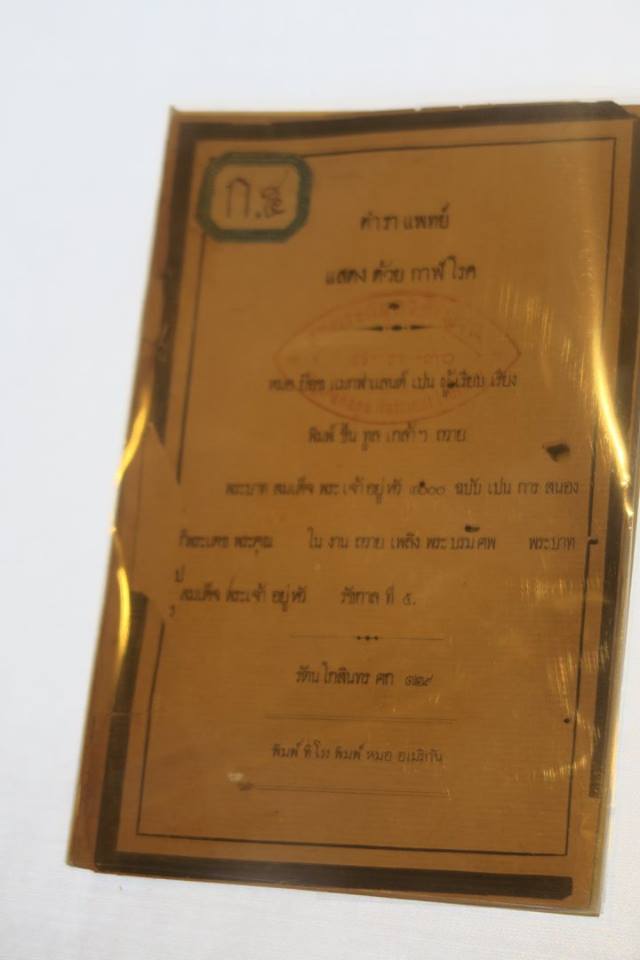 ก.๕
ตำรา แพทย์
แสดง ด้วย กาฬ โรค
หมอ ยอช แมกฟาแลนด์ เปน ผู้เรียบ เรียง
พิมพ์ ขึ้น ทูล เกล้าฯ ถวาย
พระบาท สมเด็จ พระ เจ้า อยู่ หัว ๑๐๐๐ ฉบับ เปน การ สนอง
พระเดช พระคุณ ใน งาน ถวาย เพลิง พระ บรม ศพ พระบาท
สมเด็จ พระเจ้า อยู่ หัว รัชกาล ที่ ๕.
รัตน โกสินทร ศก ๑๒๙
พิมพ์ ที่โรง พิมพ์ หมอ อเมริกัน